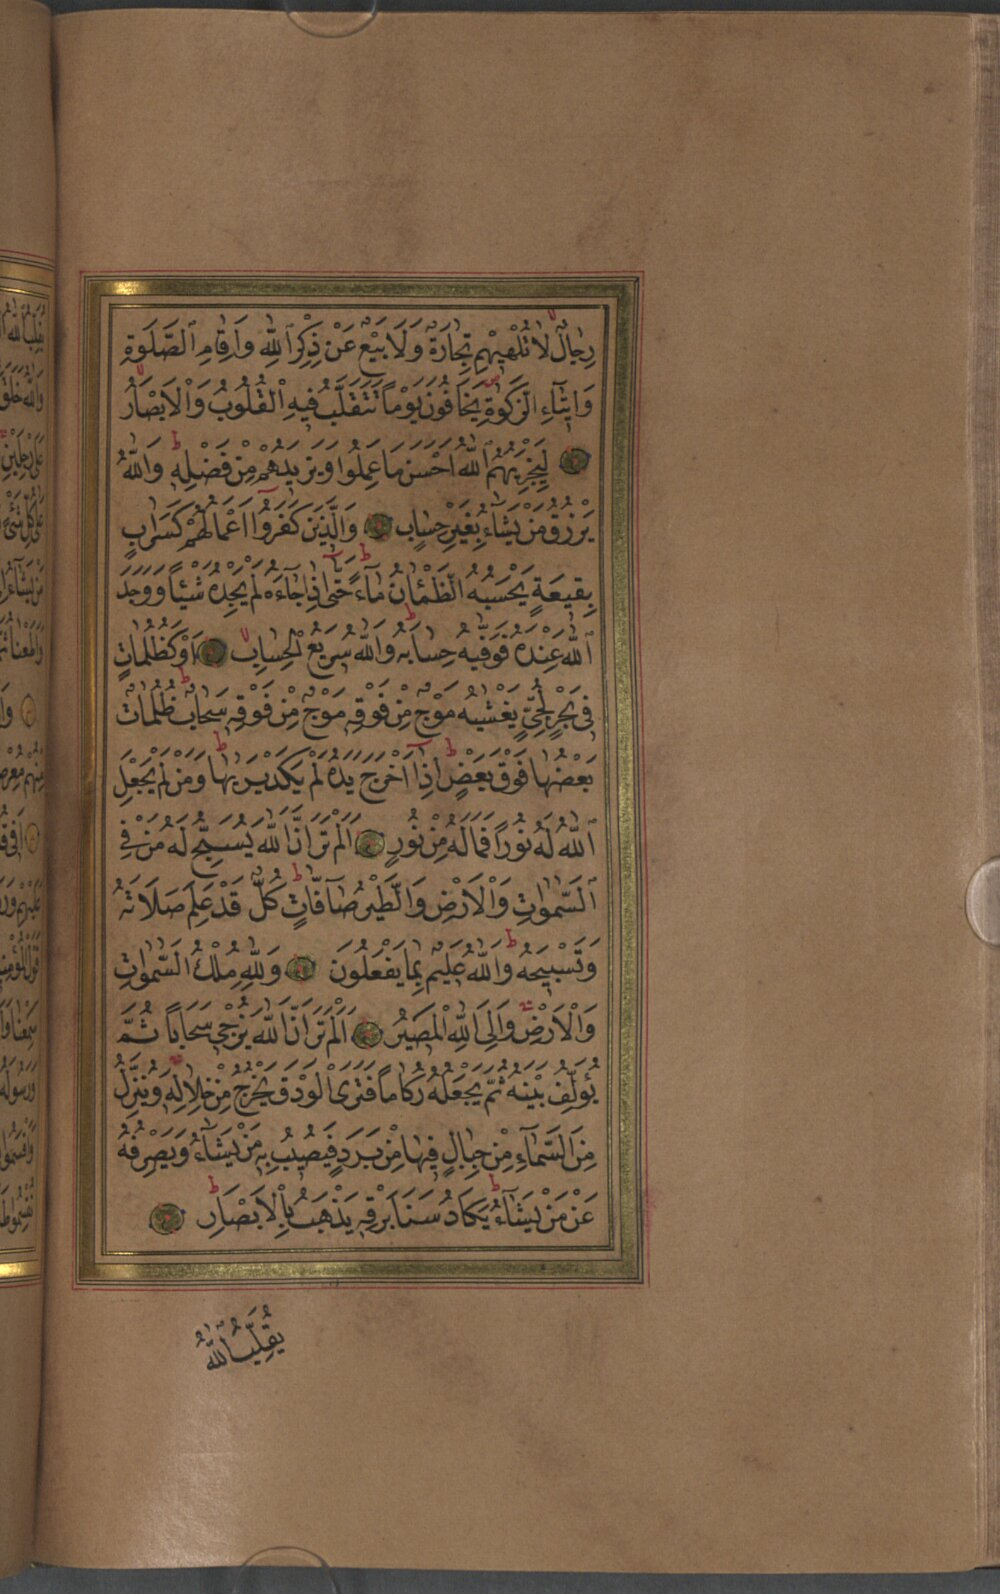 رِجَالٌ لَا تُلْهٰيهِمْ تِجَارَةٌ وَلَا بَيْعٌ عَنْ ذِكْرِ ٱللّٰهِ وَاِقَامِ ٱلصَّلٰوةِ
وَاٖيتَٓاءِ الزَّكٰوةِ يَخَافُونَ يَوْمًا تَتَقَلَّبُ فٖيهِ الْقُلُوبُ وَالْاَبْصَارُ
لِيَجْزِيَهُمُ ٱللّٰهُ اَحْسَنَ مَا عَمِلُوا وَيَزٖيدَهُمْ مِنْ فَضْلِهٖ وَاللّٰهُ
يَرْزُقُ مَنْ يَشَٓاءُ بِغَيْرِ حِسَابٍ وَالَّذٖينَ كَفَرُٓوا اَعْمَالُهُمْ كَسَرَابٍ
بِقٖيعَةٍ يَحْسَبُهُ الظَّمْاٰنُ مَٓاءً حَتّٰٓى اِذَا جَٓاءَهُ لَمْ يَجِدْهُ شَيْئًا وَوَجَدَ
ٱللّٰهَ عِنْدَهُ فَوَفّٰيهُ حِسَابَهُ وَاللّٰهُ سَرٖيعُ الْحِسَابِ اَوْ كَظُلُمَاتٍ
فٖى بَحْرٍ لُجِّىٍّ يَغْشٰيهُ مَوْجٌ مِنْ فَوْقِهٖ مَوْجٌ مِنْ فَوْقِهٖ سَحَابٌ ظُلُمَاتٌ
بَعْضُهَا فَوْقَ بَعْضٍ اِذَٓا اَخْرَجَ يَدَهُ لَمْ يَكَدْ يَرٰيهَا وَمَنْ لَمْ يَجْعَلِ
ٱللّٰهُ لَهُ نُورًا فَمَا لَهُ مِنْ نُورٍ اَلَمْ تَرَ اَنَّ اللّٰهَ يُسَبِّحُ لَهُ مَنْ فِى
ٱلسَّمٰوَاتِ وَالْاَرْضِ وَالطَّيْرُ صَٓافَّاتٍ كُلٌّ قَدْ عَلِمَ صَلَاتَهُ
وَتَسْبٖيحَهُ وَاللّٰهُ عَلٖيمٌ بِمَا يَفْعَلُونَ وَلِلّٰهِ مُلْكُ السَّمٰوَاتِ
وَالْاَرْضِ وَاِلَى اللّٰهِ الْمَصٖيرُ اَلَمْ تَرَ اَنَّ اللّٰهَ يُزْجٖى سَحَابًا ثُمَّ
يُؤَلِّفُ بَيْنَهُ ثُمَّ يَجْعَلُهُ رُكَامًا فَتَرَى الْوَدْقَ يَخْرُجُ مِنْ خِلَالِهٖ وَيُنَزِّلُ
مِنَ السَّمَٓاءِ مِنْ جِبَالٍ فٖيهَا مِنْ بَرَدٍ فَيُصٖيبُ بِهٖ مَنْ يَشَٓاءُ وَيَصْرِفُهُ
عَنْ مَنْ يَشَٓاءُ يَكَادُ سَنَا بَرْقِهٖ يَذْهَبُ بِالْاَبْصَارِ
يُقَلِّبُ ٱللّٰهُ